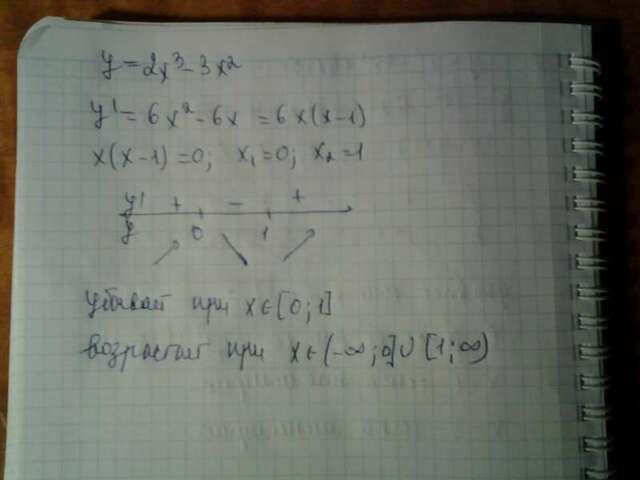 y = 2x³ - 3x²
y' = 6x² - 6x = 6x(x-1)
x(x-1) = 0; x₁=0; x₂=1
y' + - +
y 0 1
убывает при x∈[0;1]
возрастает при x∈(-∞;0]∪[1;∞)